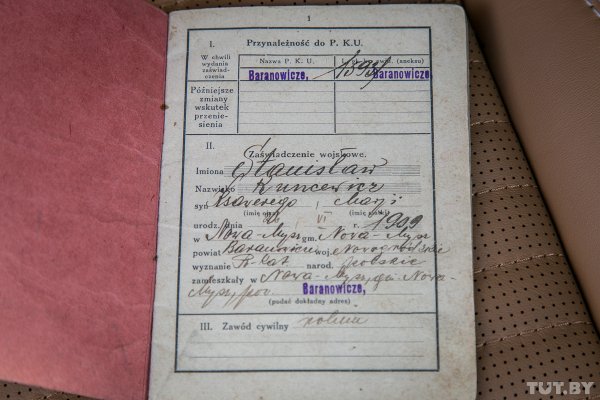 1
I. Przynależność do P. K. U.
W chwili wydania zaświadczenia
Nazwa P. K. U.
Baranowicze,
Baranowicze,
Późniejsze
zmiany
wskutek
przenie-
sienia
II. Zaświadczenie wojskowe.
Imiona Stanisław
Nazwisko Kuncewicz
syn Ksawerego i Marji
(imię ojca) (imię matki)
urodz. dnia 26 VI r. 1909
w Nowa-Mysz gm. Nowa-Mysz
powiat Baranowicze woj. Nowogródzkie
wyznanie R-kat narod. polskie
zamieszkały w Nowa-Mysz, gm. Nowa-
Mysz, pow. Baranowicze,
(podać dokładny adres)
III. Zawód cywilny rolnik
TUT.BY